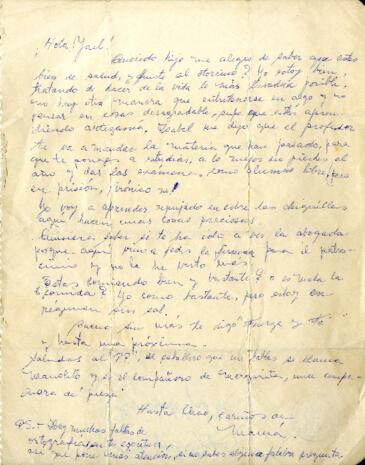 ¡Hola Yael!
Querido hijo me alegro de saber que estés
bien de salud, ¿fuiste al doctor? Yo estoy bien,
tratando de hacer de la vida lo más posible,
no hay otra manera que entretenerse en algo y no
pensar en cosas desagradable, supe que estás apren-
diendo artesanía. Isabel me dijo que el profesor
te va a mandar la materia que han pasado, para
que te pongas a estudiar, a lo mejor no pierdes el
año y das los exámenes, como alumno libre, pero
en prisión, ¡irónico no!
Yo voy a aprender repujado en cobre las chiquillas
aquí hacen unas cosas preciosas.
Quisiera saber si te ha ido a ver la abogada
porque aquí vino a pedir la firma para el patro-
cinio y no la he visto más.
¿Estás comiendo bien y bastante? o es mala la
comida? Yo como bastante, pero estoy con
régimen sin sal.
Bueno sin más te digo y
hasta una próxima.
Saludos al, el caballero que me hablas se llama
Manolito y es el compañero de Margarita, una compa-
ñera de pieza.
Hasta Chao, cariños de
Mamá.
PS.- muchas faltas de
ortografía en tu escritura,
así que pone más atención, si no sabes alguna palabra pregunta.